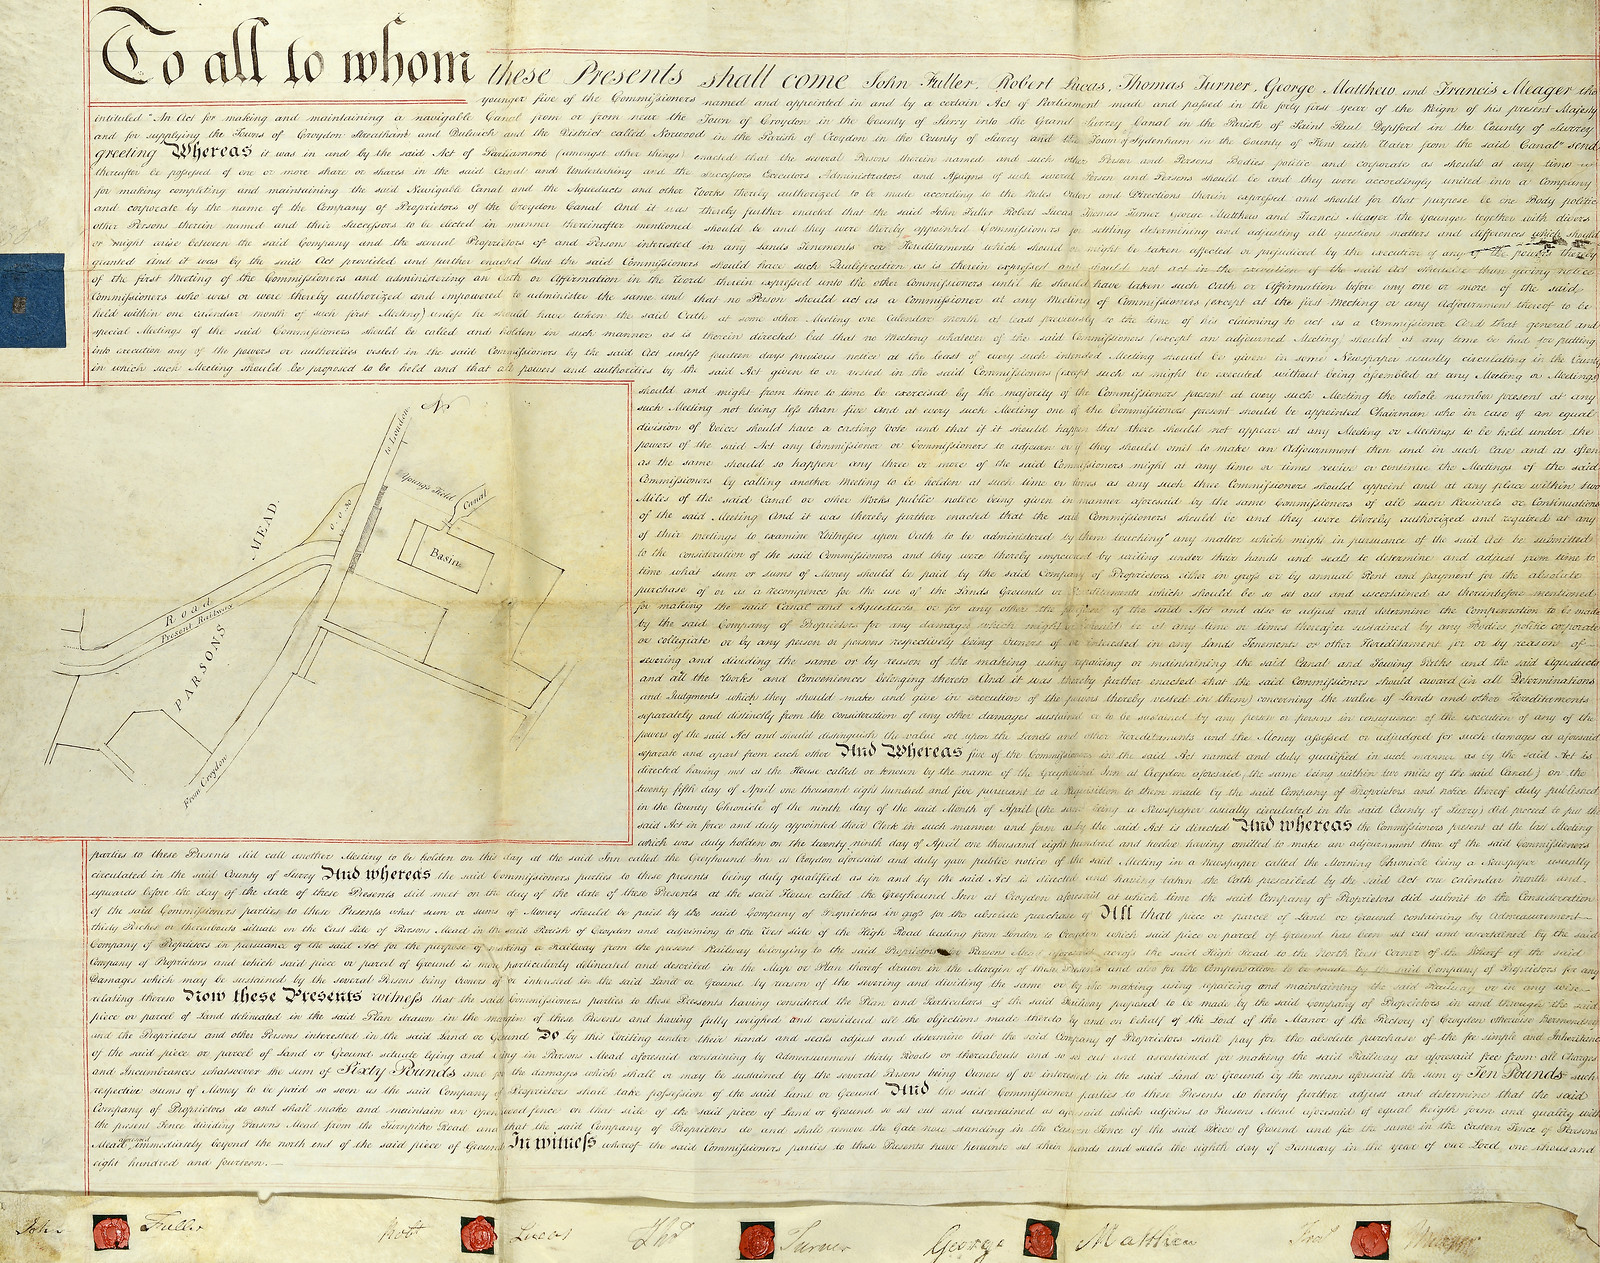 To all to whom these Presents shall come John Fuller, Robert Lucas, Thomas Turner, George Matthew and Francis Meager the
younger five of the Commissioners named and appointed in and by a certain Act of Parliament made and passed in the forty first year of the Reign of his present Majesty
intituled "An Act for making and maintaining a navigable Canal from or from near the Town of Croydon in the County of Surry into the Grand Surrey Canal in the Parish of Saint Paul Deptford in the County of Surrey
and for supplying the Towns of Croydon Streatham and Dulwich and the District called Norwood in the Parish of Croydon in the County of Surrey and the Town of Sydenham in the County of Kent with Water from the said Canal" send
greeting Whereas it was in and by the said Act of Parliament (amongst other things) enacted that the several Persons therein named and such other Person and Persons Bodies politic and corporate as should at any time
thereafter be possessed of one or more share or shares in the said Canal and Undertaking and the successors Executors Administrators and Assigns of such several Person and Persons should be and they were accordingly united into a Company
for making completing and maintaining the said Navigable Canal and the Aqueducts and other Works thereby authorized to be made according to the Rules Orders and Directions therein expressed and should for that purpose be one Body politic
and corporate by the name of the Company of Proprietors of the Croydon Canal And it was thereby further enacted that the said John Fuller Robert Lucas Thomas Turner George Matthew and Francis Meager the younger together with divers
other Persons therein named and their Successors to be elected in manner thereinafter mentioned should be and they were thereby appointed Commissioners for settling determining and adjusting all questions matters and differences which should
or might arise between the said Company and the several Proprietors of and Persons interested in any Lands Tenements or Hereditaments which should or might be taken affected or prejudiced by the execution of any of the powers thereby
granted And it was by the said Act provided and further enacted that the said Commissioners should have such Qualification as is therein expressed and should not act in the execution of the said Act otherwise than giving notice
of the first Meeting of the Commissioners and administering an Oath or Affirmation in the Words therein expressed unto the other Commissioners until he should have taken such Oath or Affirmation before any one or more of the said
Commissioners who was or were thereby authorized and empowered to administer the same and that no Person should act as a Commissioner at any Meeting of Commissioners (except at the first Meeting or any Adjournment thereof to be
held within one calendar month of such first Meeting) unless he should have taken the said Oath at some other Meeting one Calendar month at least previously to the time of his claiming to act as a Commissioner And that general and
special Meetings of the said Commissioners should be called and holden in such manner as is therein directed but that no Meeting whatever of the said Commissioners (except an adjourned Meeting) should at any time be had for putting
into execution any of the powers or authorities vested in the said Commissioners by the said Act unless fourteen days previous notice at the least of every such intended Meeting should be given in some Newspaper usually circulating in the County
in which such Meeting should be proposed to be held and that all powers and authorities by the said Act given to or vested in the said Commissioners (except such as might be executed without being assembled at any Meeting or Meetings)
should and might from time to time be exercised by the majority of the Commissioners present at every such Meeting the whole number present at any
such Meeting not being less than five And at every such Meeting one of the Commissioners present should be appointed Chairman who in case of an equal
division of Voices should have a casting Vote and that if it should happen that there should not appear at any Meeting or Meetings to be held under the
powers of the said Act any Commissioner or Commissioners to adjourn or if they should omit to make an Adjournment then and in such Case and as often
as the same should so happen any three or more of the said Commissioners might at any time or times revive or continue the Meetings of the said
Commissioners by calling another Meeting to be holden at such time or times as any such three Commissioners should appoint and at any place within two
Miles of the said Canal or other Works public notice being given in manner aforesaid by the same Commissioners of all such Revivals or Continuations
of the said Meeting And it was thereby further enacted that the said Commissioners should be and they were thereby authorized and required at any
of their Meetings to examine Witnesses upon Oath to be administered by them touching any matter which might in pursuance of the said Act be submitted
to the consideration of the said Commissioners and they were thereby empowered by writing under their hands and seals to determine and adjust from time to
time what sum or sums of Money should be paid by the said Company of Proprietors either in gross or by annual Rent and payment for the absolute
purchase of or as a recompence for the use of the Lands Grounds or Hereditaments which should be so set out and ascertained as thereinbefore mentioned
for making the said Canal and Aqueducts or for any other the purposes of the said Act and also to adjust and determine the Compensation to be made
by the said Company of Proprietors for any damages which might or should be at any time or times thereafter sustained by any Bodies politic corporate
or collegiate or by any person or persons respectively being Owners of or interested in any Lands Tenements or other Hereditament for or by reasons of
severing and dividing the same or by reason of the making using repairing or maintaining the said Canal and Towing Paths and the said Aqueducts
and all the Works and Conveniences belonging thereto And it was thereby further enacted that the said Commissioners should award (in all Determinations
and Judgments which they should make and give in execution of the powers thereby vested in them) concerning the value of Lands and other Hereditaments
separately and distinctly from the consideration of any other damages sustained or to be sustained by any person or persons in consequence of the execution of any of the
powers of the said Act and should distinguish the value set upon the Lands and other Hereditaments and the Money assessed or adjudged for such damages as aforesaid
separate and apart from each other And Whereas five of the Commissioners in the said Act named and duly qualified in such manner as by the said Act is
directed having met at the House called or known by the name of the Greyhound Inn at Croydon aforesaid (the same being within two miles of the said Canal) on the
twenty fifth day of April one thousand eight hundred and five pursuant to a Requisition to them made by the said Company of Proprietors and notice thereof duly published
in the County Chronicle of the ninth day of the said Month of April (the same being a Newspaper usually circulated in the said County of Surry) did proceed to put the
said Act in force and duly appointed their Clerk in such manner and form as by the said Act is directed And whereas the Commissioners present at the last Meeting
which was duly holden on the twenty ninth day of April one thousand eight hundred and twelve having omitted to make an adjournment three of the said Commissioners
parties to these Presents did call another Meeting to be holden on this day at the said Inn called the Greyhound Inn at Croydon aforesaid and duly gave public notice of the said Meeting in a Newspaper called the Morning Chronicle being a Newspaper usually
circulated in the said County of Surry And whereas the said Commissioners parties to these presents being duly qualified as in and by the said Act is directed and having taken the Oath prescribed by the said Act one calendar month and
upwards before the day of the date of these Presents did meet on the day of the date of these Presents at the said House called the Greyhound Inn at Croydon aforesaid at which time the said Company of Proprietors did submit to the Consideration
of the said Commissioners parties to these Presents what sum or sums of Money should be paid by the said Company of Proprietors in gross for the absolute purchase of All that piece or parcel of Land or Ground containing by Admeasurement
thirty Perches or thereabouts situate on the East Side of Parsons Mead in the said Parish of Croydon and adjoining to the West side of the High Road leading from London to Croydon which said piece or parcel of Ground has been set out and ascertained by the said
Company of Proprietors in pursuance of the said Act for the purpose of making a Railway from the present Railway belonging to the said Proprietors in Parsons Mead aforesaid across the said High Road to the North West Corner of the Wharf of the said
Company of Proprietors and which said piece or parcel of Ground is more particularly delineated and described in the Map or Plan thereof drawn in the Margin of these Presents and also for the Compensation to be made by the said Company of Proprietors for any
Damages which may be sustained by the several Persons being Owners of or interested in the said Land or Ground by reason of the severing and dividing the same or by the making using repairing and maintaining the said Railway or in any wise
relating thereto Now these Presents witness that the said Commissioners parties to these Presents having considered the Plan and Particulars of the said Railway proposed to be made by the said Company of Proprietors in and through the said
piece or parcel of Land delineated in the said Plan drawn in the margin of these Presents and having fully weighed and considered all the objections made thereto by and on behalf of the Lord of the Manor of the Rectory of Croydon otherwise Bermondsey
and the Proprietors and other Persons interested in the said Land or Ground Do by this Writing under their hands and seals adjust and determine that the said Company of Proprietors shall pay for the absolute purchase of the fee simple and Inheritance
of the said piece or parcel of Land or Ground situate lying and being in Parsons Mead aforesaid containing by Admeasurement thirty Roods or thereabouts and so set out and ascertained for making the said Railway as aforesaid free from all Charges
and Incumbrances whatsoever the sum of Sixty Pounds and for the damages which shall or may be sustained by the several Persons being Owners of or interested in the said Land or Ground by the means aforesaid the sum of Ten Pounds such
respective sums of Money to be paid so soon as the said Company of Proprietors shall take possession of the said Land or Ground And the said Commissioners parties to these Presents do hereby further adjust and determine that the said
Company of Proprietors do and shall make and maintain an open wood fence on that side of the said piece of Land or Ground so set out and ascertained as aforesaid which adjoins to Parsons Mead aforesaid of equal heigth form and quality with
the present Fence dividing Parsons Mead from the Turnpike Road and that the said Company of Proprietors do and shall remove the Gate now standing in the Eastern Fence of the said Piece of Ground and fix the same in the Eastern Fence of Parsons
Mead aforesaid immediately beyond the north end of the said piece of Ground In witness whereof the said Commissioners parties to these Presents have hereunto set their hands and seals the eighth day of January in the year of our Lord one thousand
eight hundred and fourteen.
N
to London
Youngs Field
Canal
Basin
0..0..30
MEAD.
Road
Present Railway
PARSONS
From Croydon
John Fuller
Robt Lucas
Thos Turner
George Matthew
Fras Meager